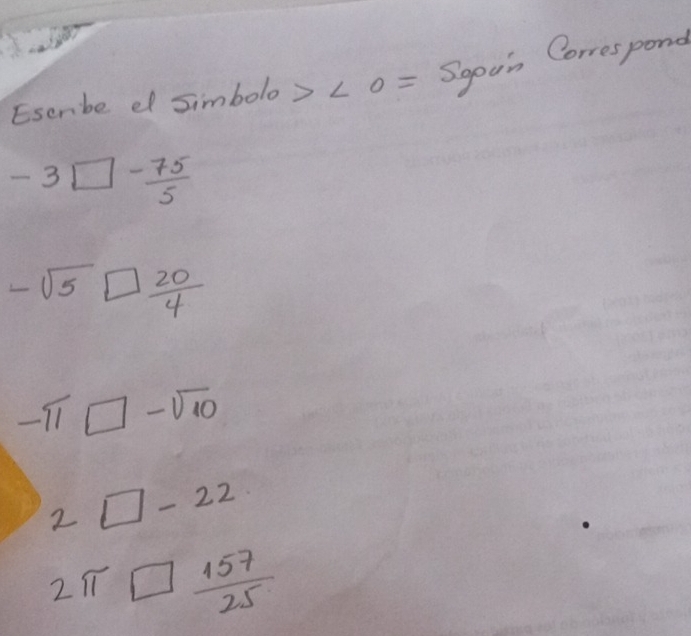 Escribe el simbolo > < o = Segun Correspond
-3 □ -75/5
-√5 □ 20/4
-π □ -√10
2 □ -22
2π □ 157/25